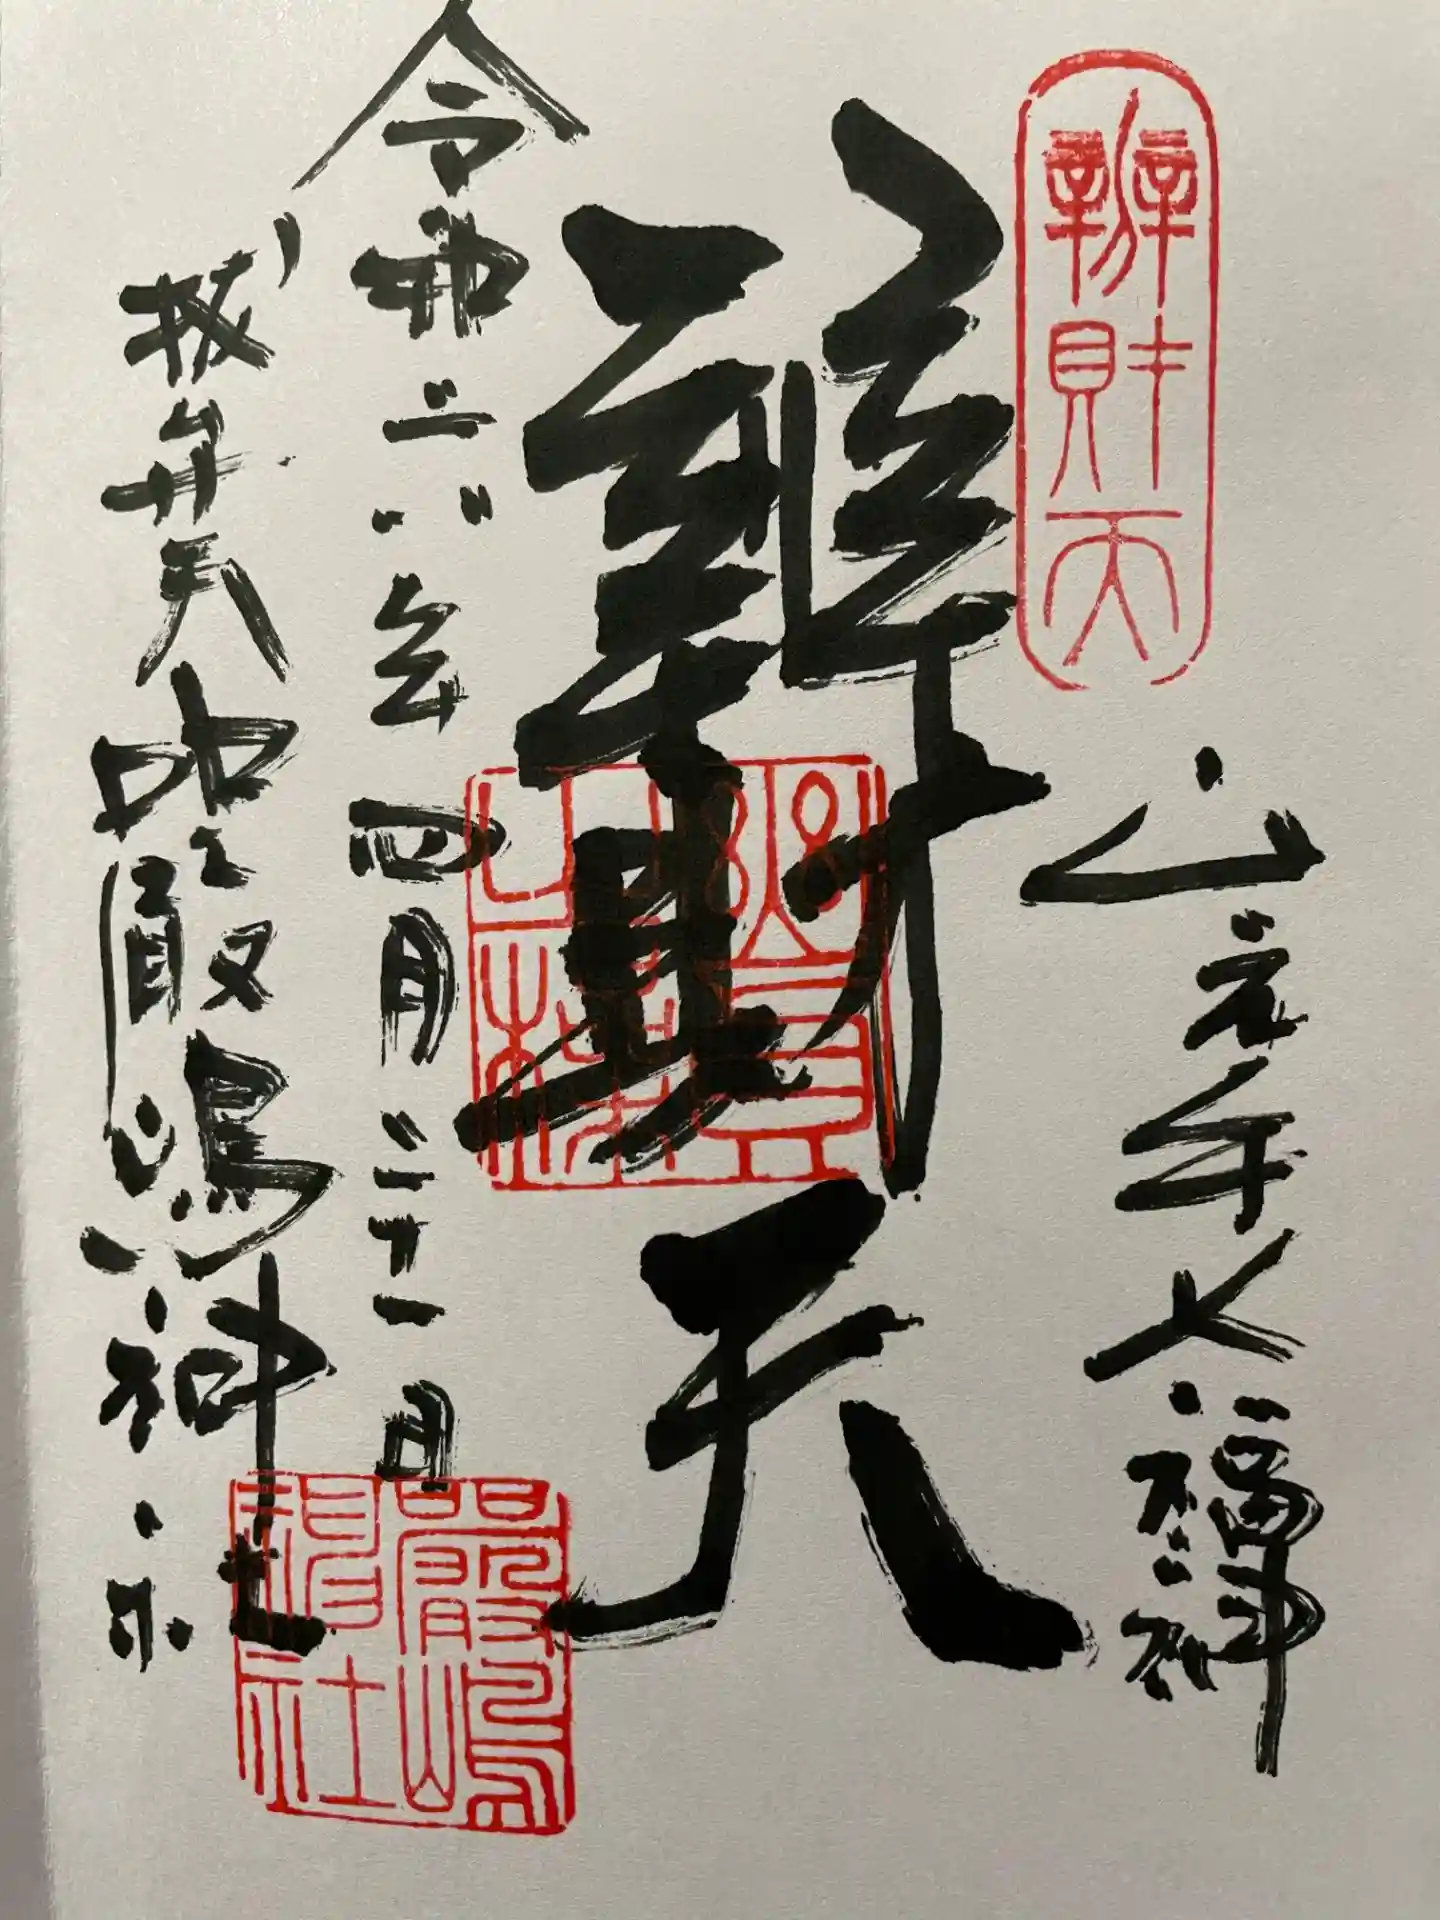 辨財天
山之手七福神
辨財天
令和六年四月二十一日
抜弁天 嚴嶋神社
嚴嶋神社